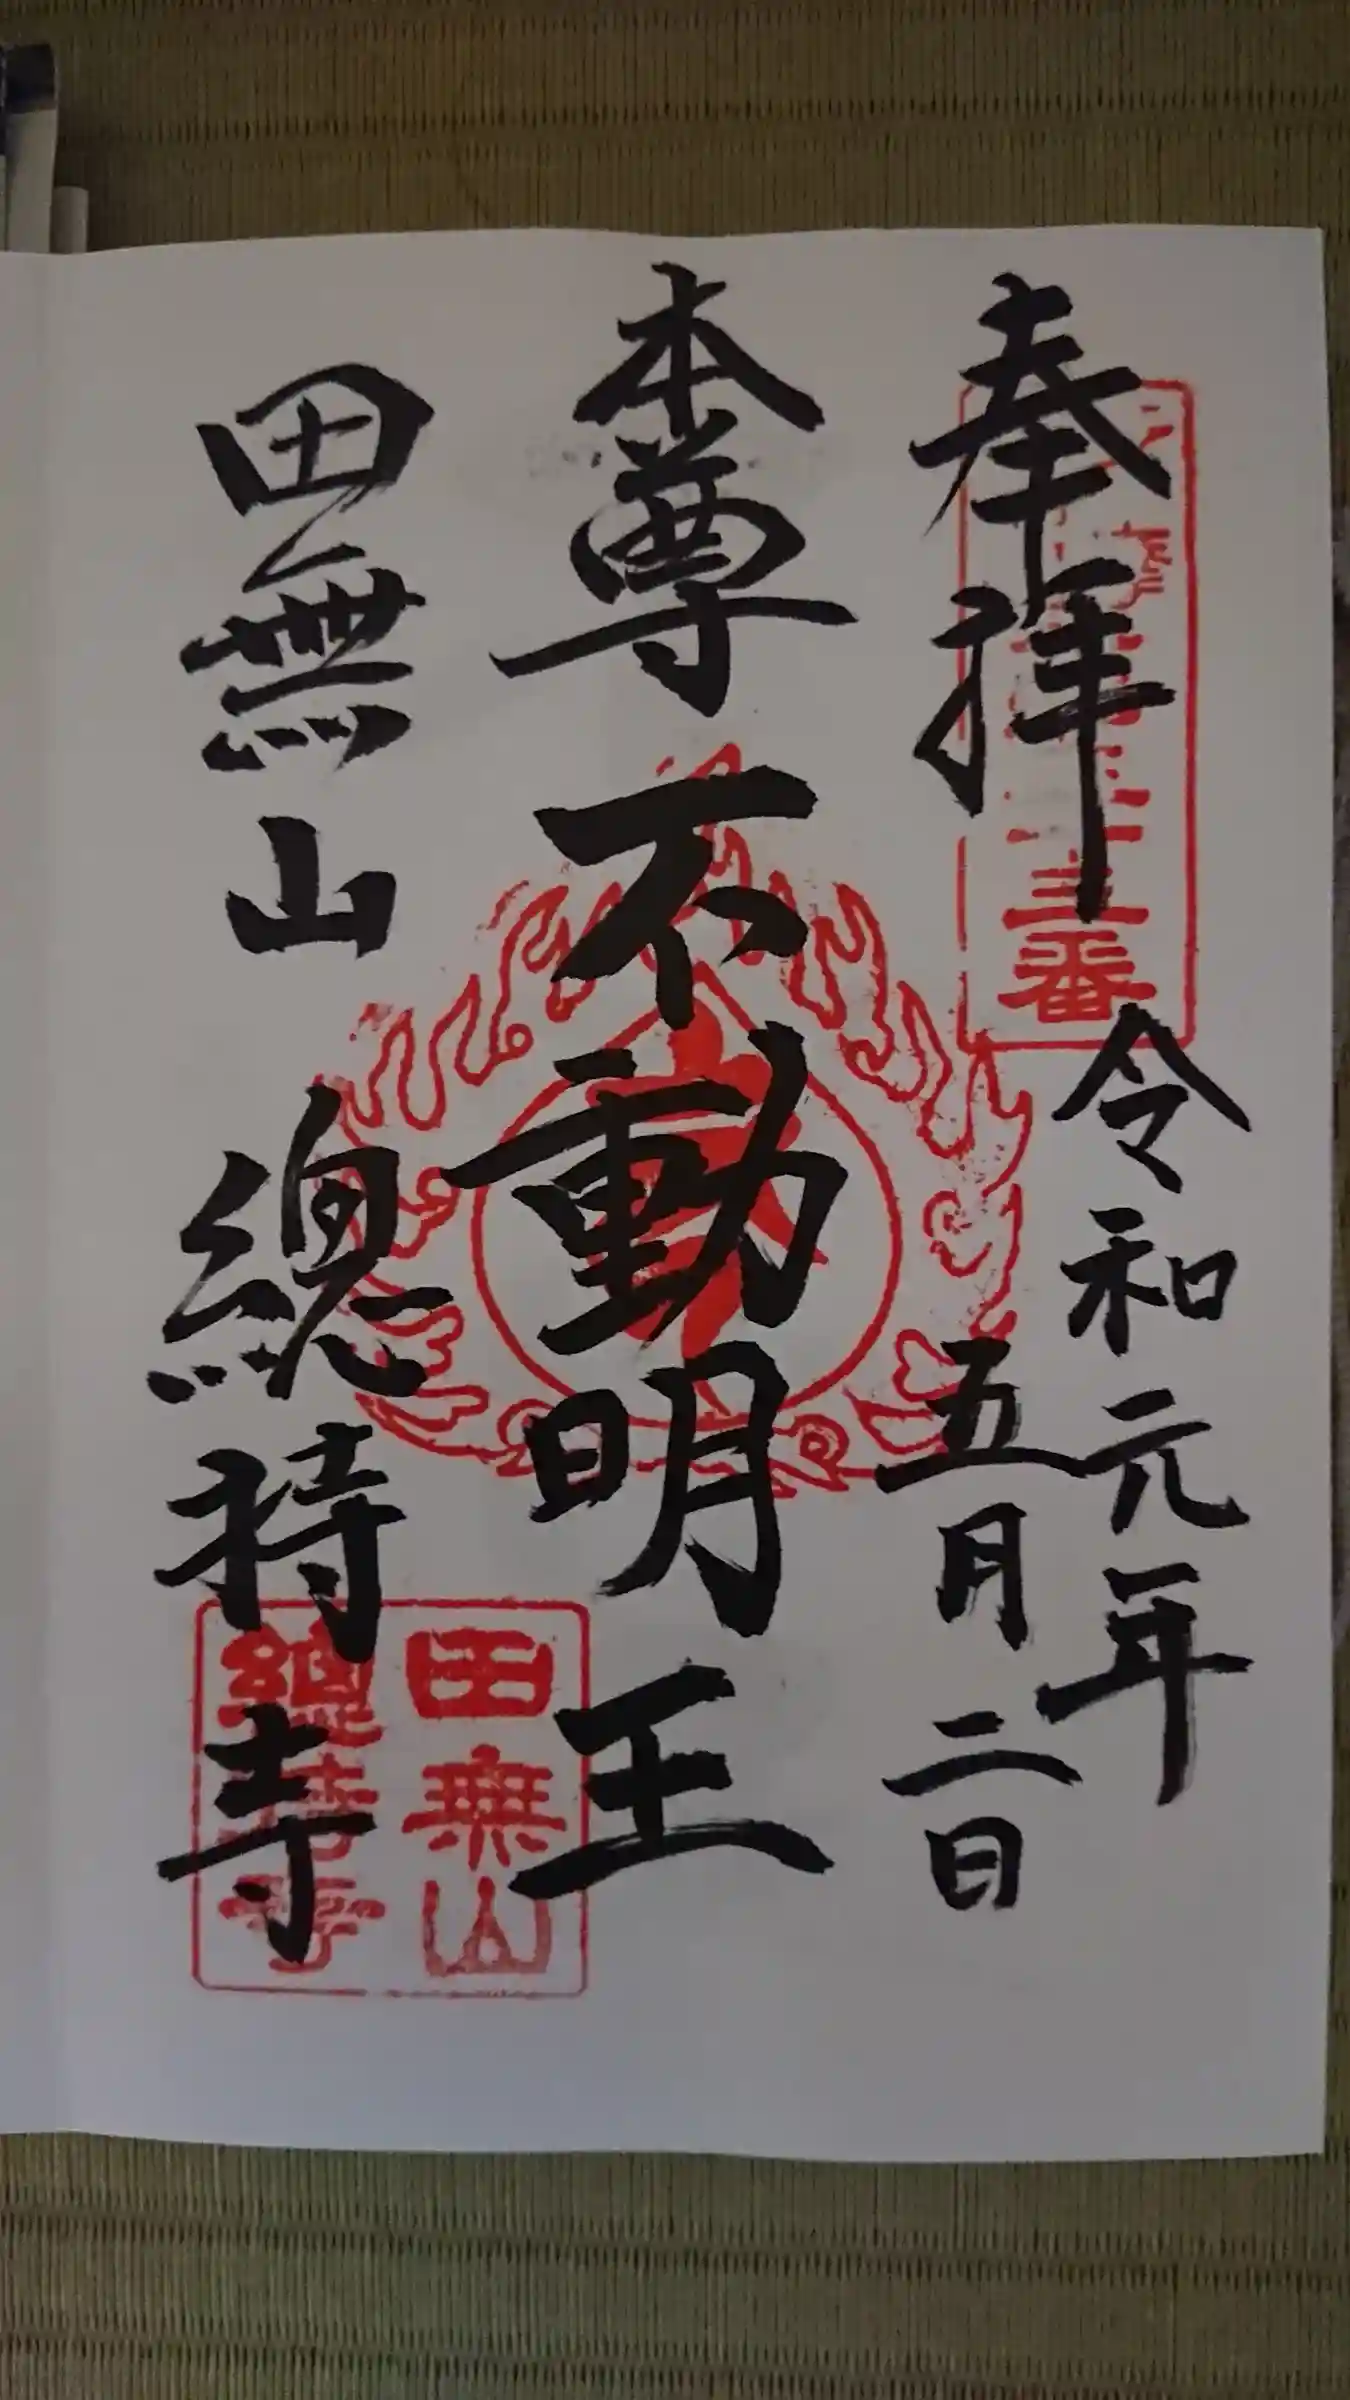 奉拝
令和元年
五月二日
本尊不動明王
田無山 總持寺
三番
田無山
總持寺